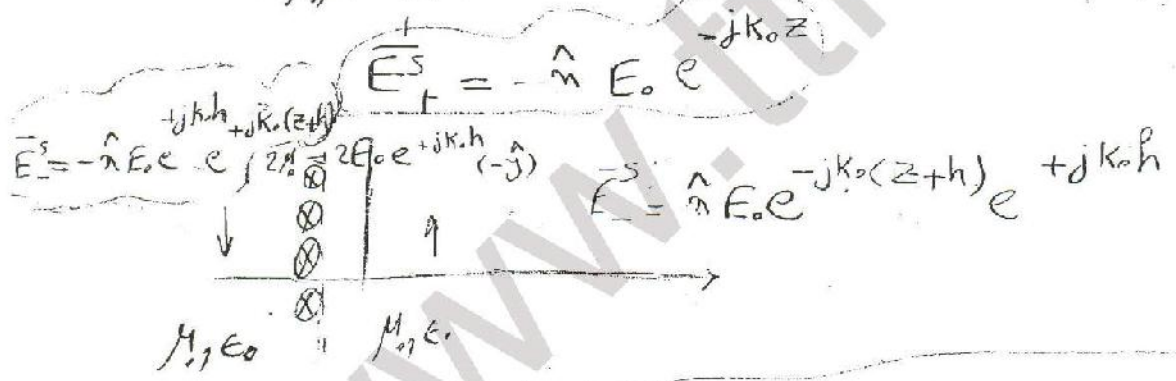 \overline{E^s_+} = -\hat{n} E_0 e^{-jk_0 z}
\overline{E}^s_- = -\hat{n} E_0 e^{+jk_0 h} e^{+jk_0(z+h)}, 2E_0 e^{+jk_0 h} (-\hat{y})
\overline{E}^s_- = \hat{n} E_0 e^{-jk_0(z+h)} e^{+jk_0 h}
μ_0, ε_0
μ_0, ε_0
www.